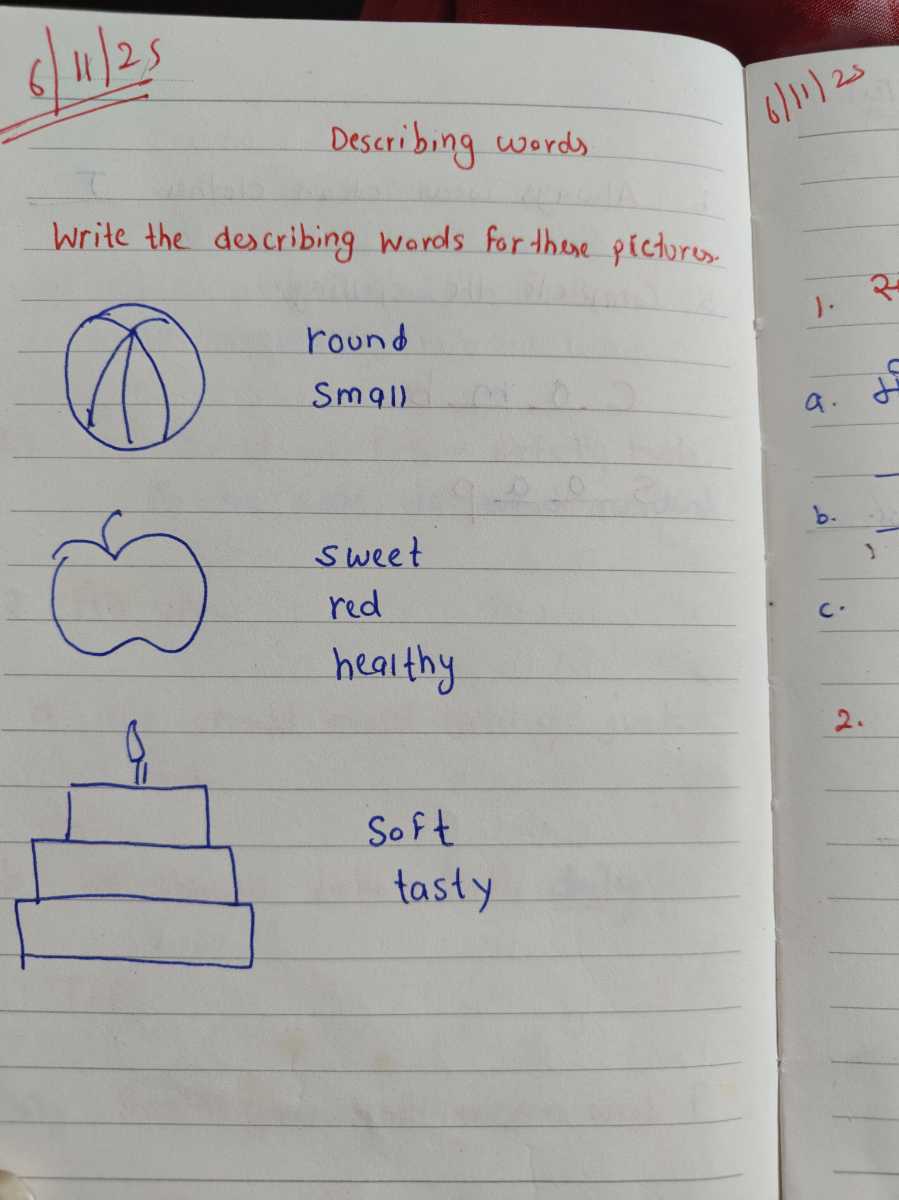 6/11/25
Describing words
Write the describing words for these pictures.
round
small
sweet
red
healthy
Soft
tasty
6/11/25
1.
a.
b.
c.
2.